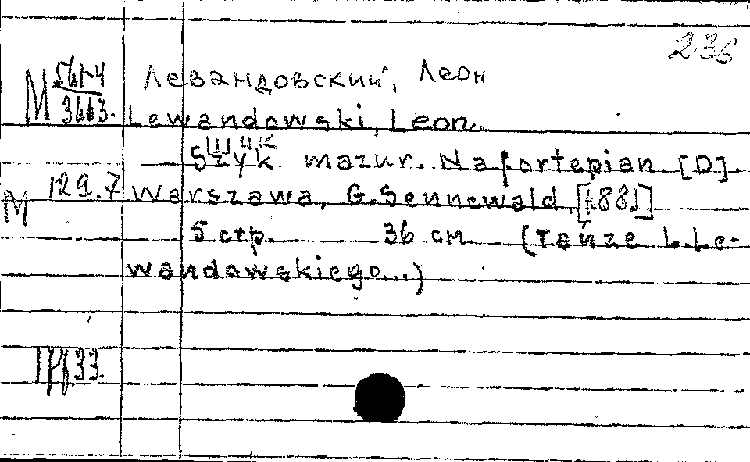 236
М 561-4
3663.
Левандовский, Леон
Lewandowski, Leon.
Szyk mazur. Na fortepian [D]
М 129.7
Warszawa, G. Sennewald, [188.]
5 стр. 36 см (Tańze L. Le-
wandowskiego...)